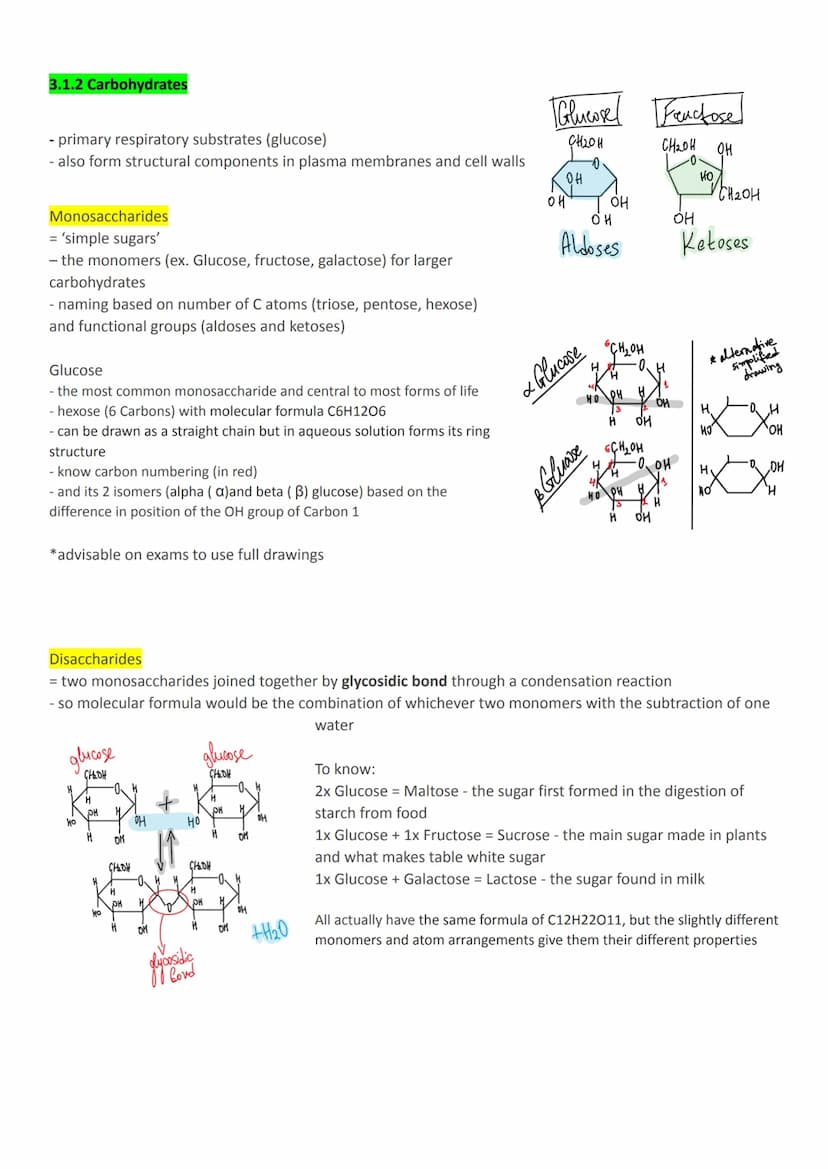 3.1.2 Carbohydrates
- primary respiratory substrates (glucose)
- also form structural components in plasma membranes and cell walls
Glucose
CH2OH
O
OH
OH
OH
OH
Aldoses
Fructose
CH2OH
OH
O
HO
CH2OH
OH
Ketoses
Monosaccharides
= ‘simple sugars’
– the monomers (ex. Glucose, fructose, galactose) for larger
carbohydrates
- naming based on number of C atoms (triose, pentose, hexose)
and functional groups (aldoses and ketoses)
Glucose
- the most common monosaccharide and central to most forms of life
- hexose (6 Carbons) with molecular formula C6H12O6
- can be drawn as a straight chain but in aqueous solution forms its ring
structure
- know carbon numbering (in red)
- and its 2 isomers (alpha ( α)and beta ( β) glucose) based on the
difference in position of the OH group of Carbon 1
*advisable on exams to use full drawings
α Glucose
6CH2OH
H O H
H
4 1
HO OH H OH
3 2
H OH
β Glucose
6CH2OH
H O OH
H
4 1
HO OH H H
3 2
H OH
* alternative
simplified
drawing
H O H
HO OH
H O OH
HO H
Disaccharides
= two monosaccharides joined together by glycosidic bond through a condensation reaction
- so molecular formula would be the combination of whichever two monomers with the subtraction of one
water
glucose glucose
CH2OH CH2OH
H O H H O H
H H
HO OH H OH + HO OH H OH
H OH H OH
CH2OH CH2OH
H O H H O H
H H
HO OH H O OH H OH
H OH H OH
+H2O
glycosidic
bond
To know:
2x Glucose = Maltose - the sugar first formed in the digestion of
starch from food
1x Glucose + 1x Fructose = Sucrose - the main sugar made in plants
and what makes table white sugar
1x Glucose + Galactose = Lactose - the sugar found in milk
All actually have the same formula of C12H22O11, but the slightly different
monomers and atom arrangements give them their different properties